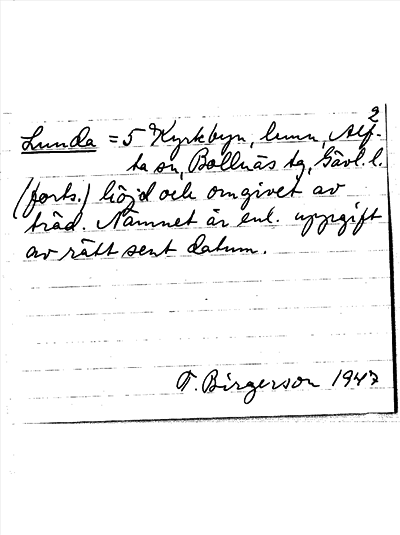 2
Lunda = 5 Kyrkbyn, hmn, Alf-
ta sn, Bollnäs tg, Gävl. l.
(forts.) höjd och omgivet av
träd. Namnet är enl. uppgift
av rätt sent datum.
T. Birgerson 1947